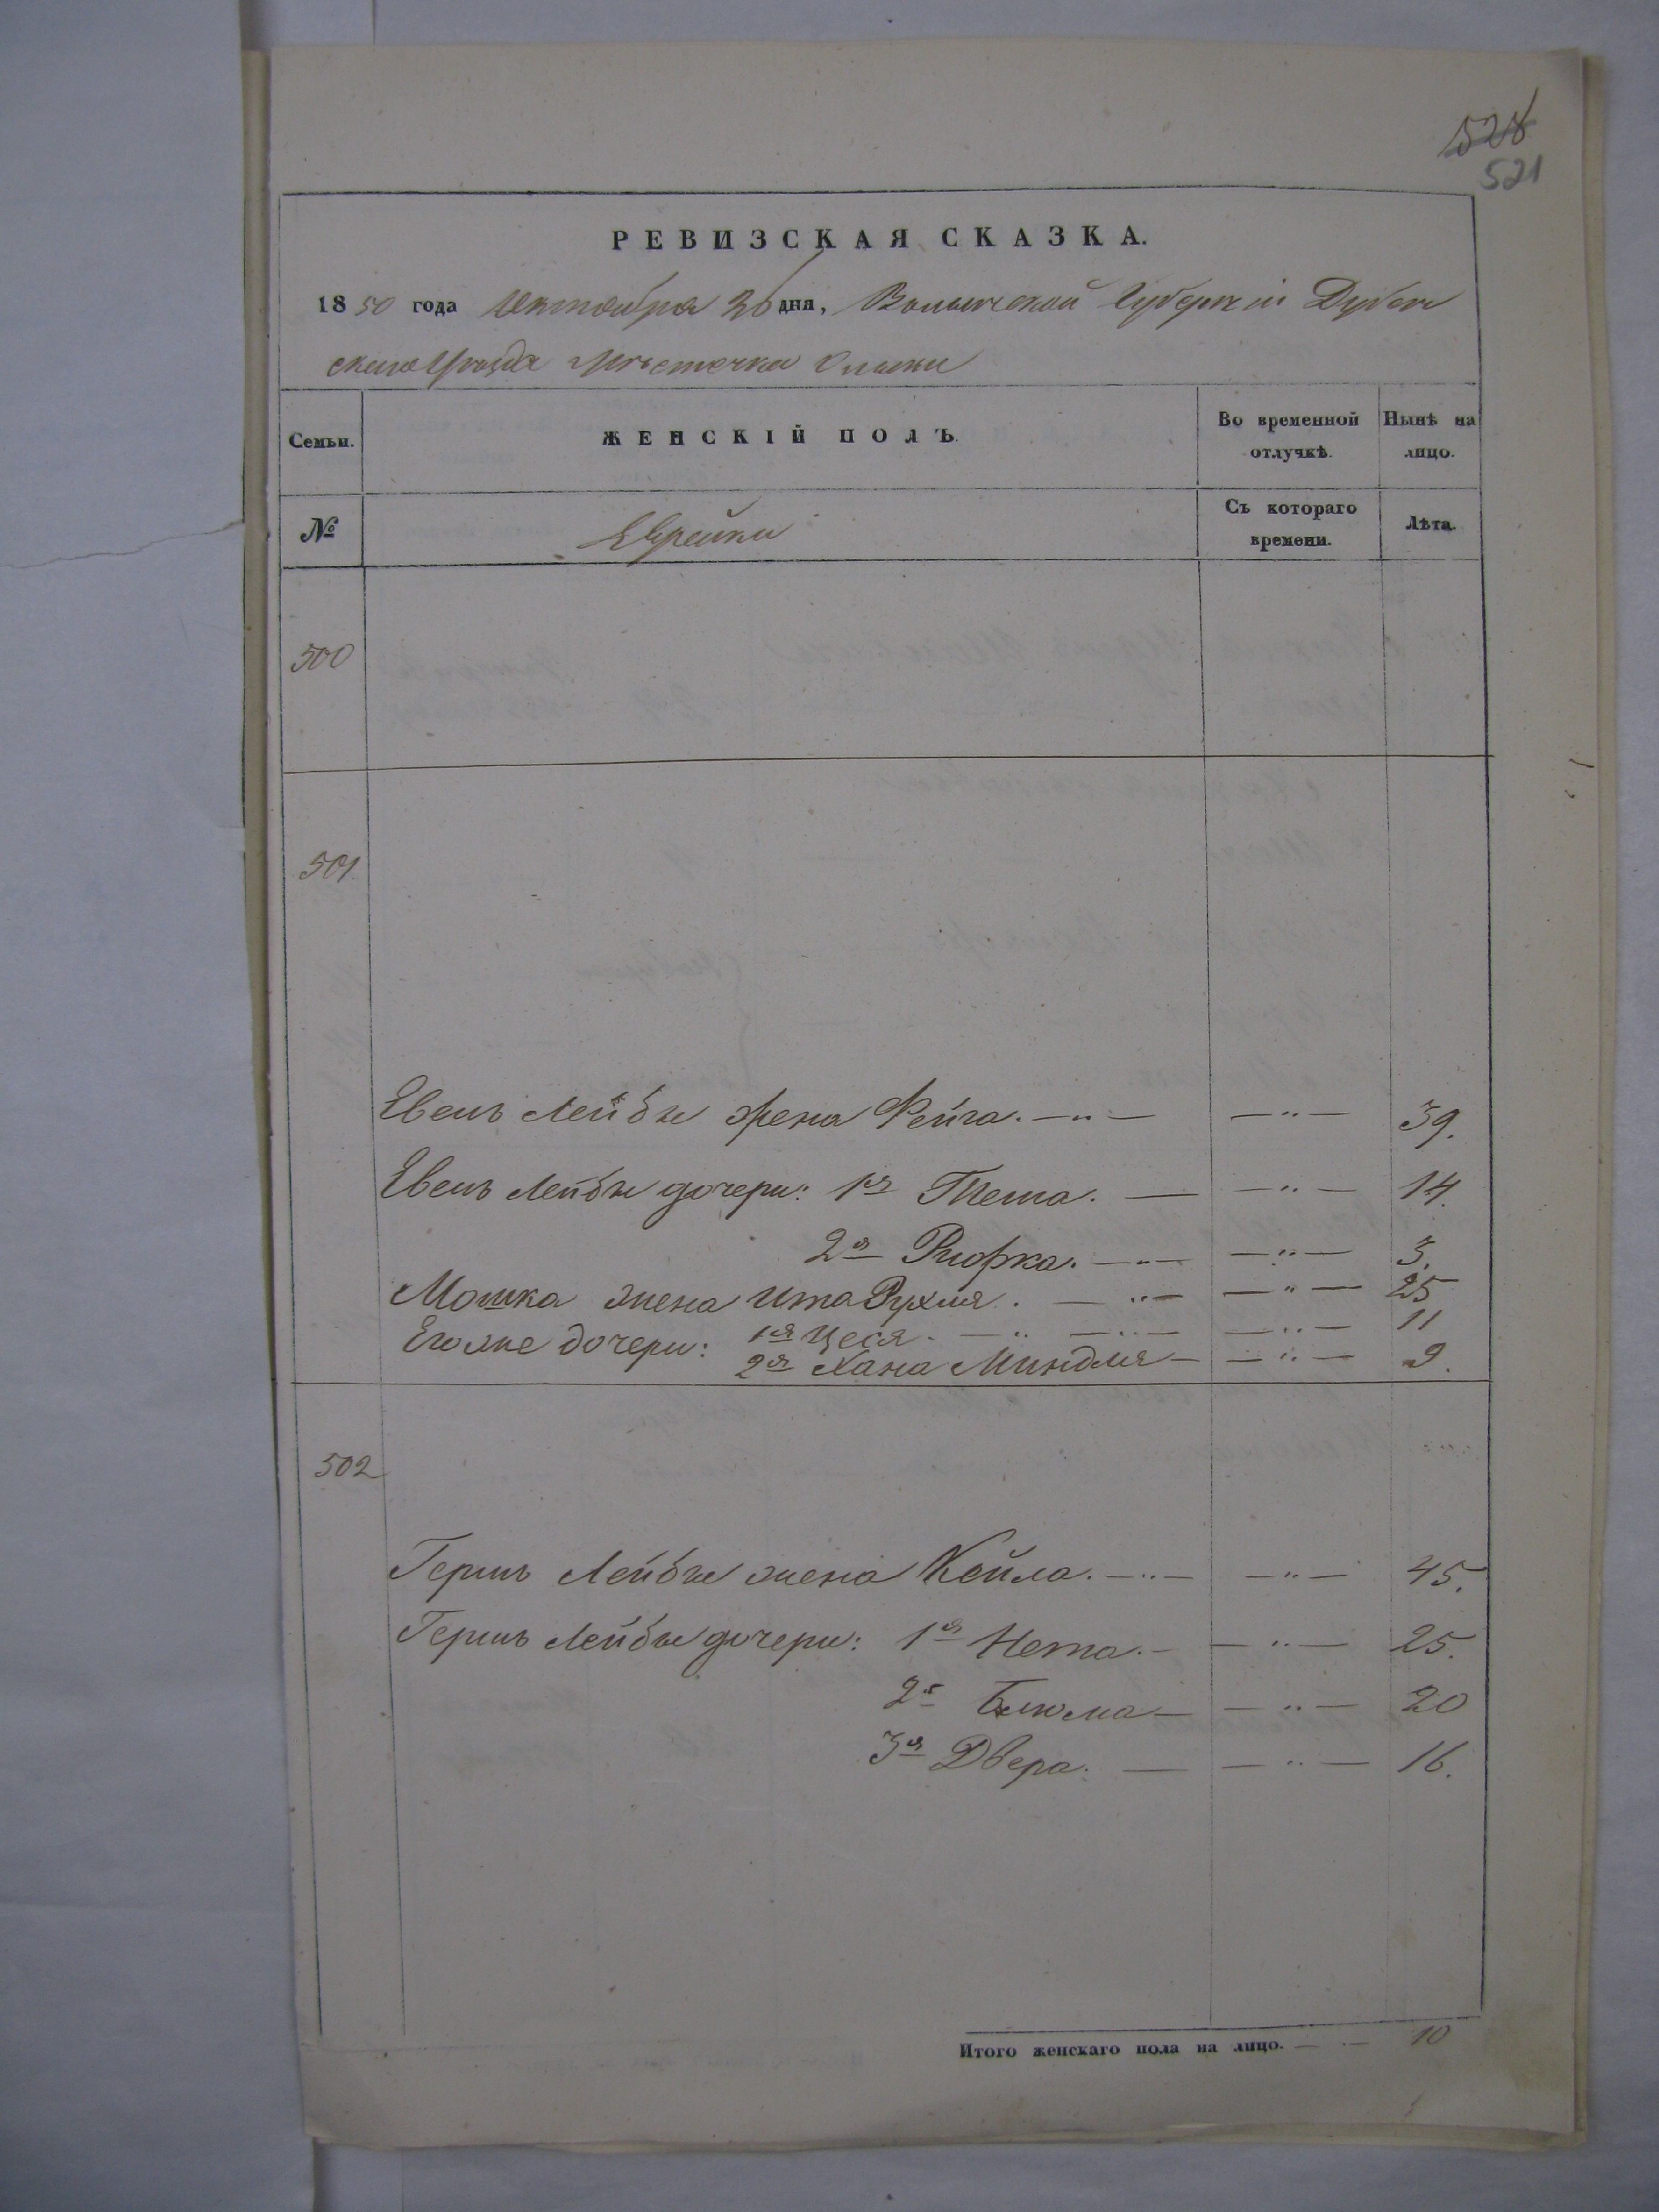 528
521
РЕВИЗСКАЯ СКАЗКА.
1850 года Октября 30 дня, Волынской Губернiи Дубен
скаго Уѣзда Мѣстечка Олыки
Семьи. ЖЕНСКIЙ ПОЛЪ. Во временной отлучкѣ. Нынѣ на лицо.
№ Еврейки Съ котораго времени. Лѣта.
500
501
Евель Лейбы жена Фейга. — " — — " — 39.
Евель Лейбы дочери: 1я Тема. — — " — 14.
2я Рифка. — " — — " — 3.
Мошка жена Ита Рухля. — " — — " — 25
Его же дочери: 1я Цеся. — " — " — — " — 11
2я Хана Миндля — — " — 9.
502
Герш Лейбы жена Кейла. — " — — " — 45.
Герш Лейбы дочери: 1я Нета. — — " — 25.
2я Блюма — — " — 20
3я Двера. — — " — 16.
Итого женскаго пола на лицо. — — 10